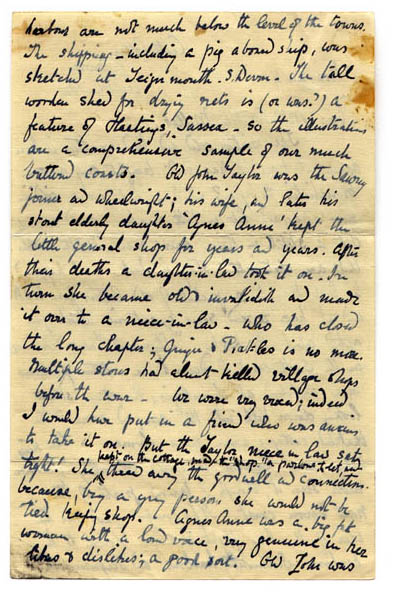 harbour are not much below the level of the towns.
The shipping – including a pig aboard ship, was
sketched at Teignmouth. S. Devon – The tall
wooden shed for drying nets is (or was?) a
feature of Hastings, Sussex – so the illustrations
are a comprehensive sample of our much
battered coasts. Old John Taylor was the Sawrey
joiner and wheelwright; his wife, and later his
stout elderly daughter 'Agnes Anne' kept the
little general shop for years and years. After
their deaths a daughter-in-law took it on. In
turn she became old & invalidish and made
it over to a niece-in-law – who has closed
the long chapter; Ginger & Pickles is no more.
Multiple stores had almost killed village shops
before the war – We were very vexed; indeed
I would have put in a friend who was anxious
to take it on. But the Taylor niece in law sits
kept on the cottage, made the "shop" a parlour to let, and
tight! She threw away the goodwill and connection.
because, being a gay person she would not be
tied keeping shop. Agnes Anne was a big fat
woman with a loud voice, very genuine in her
likes & dislikes; a good sort. Old John was